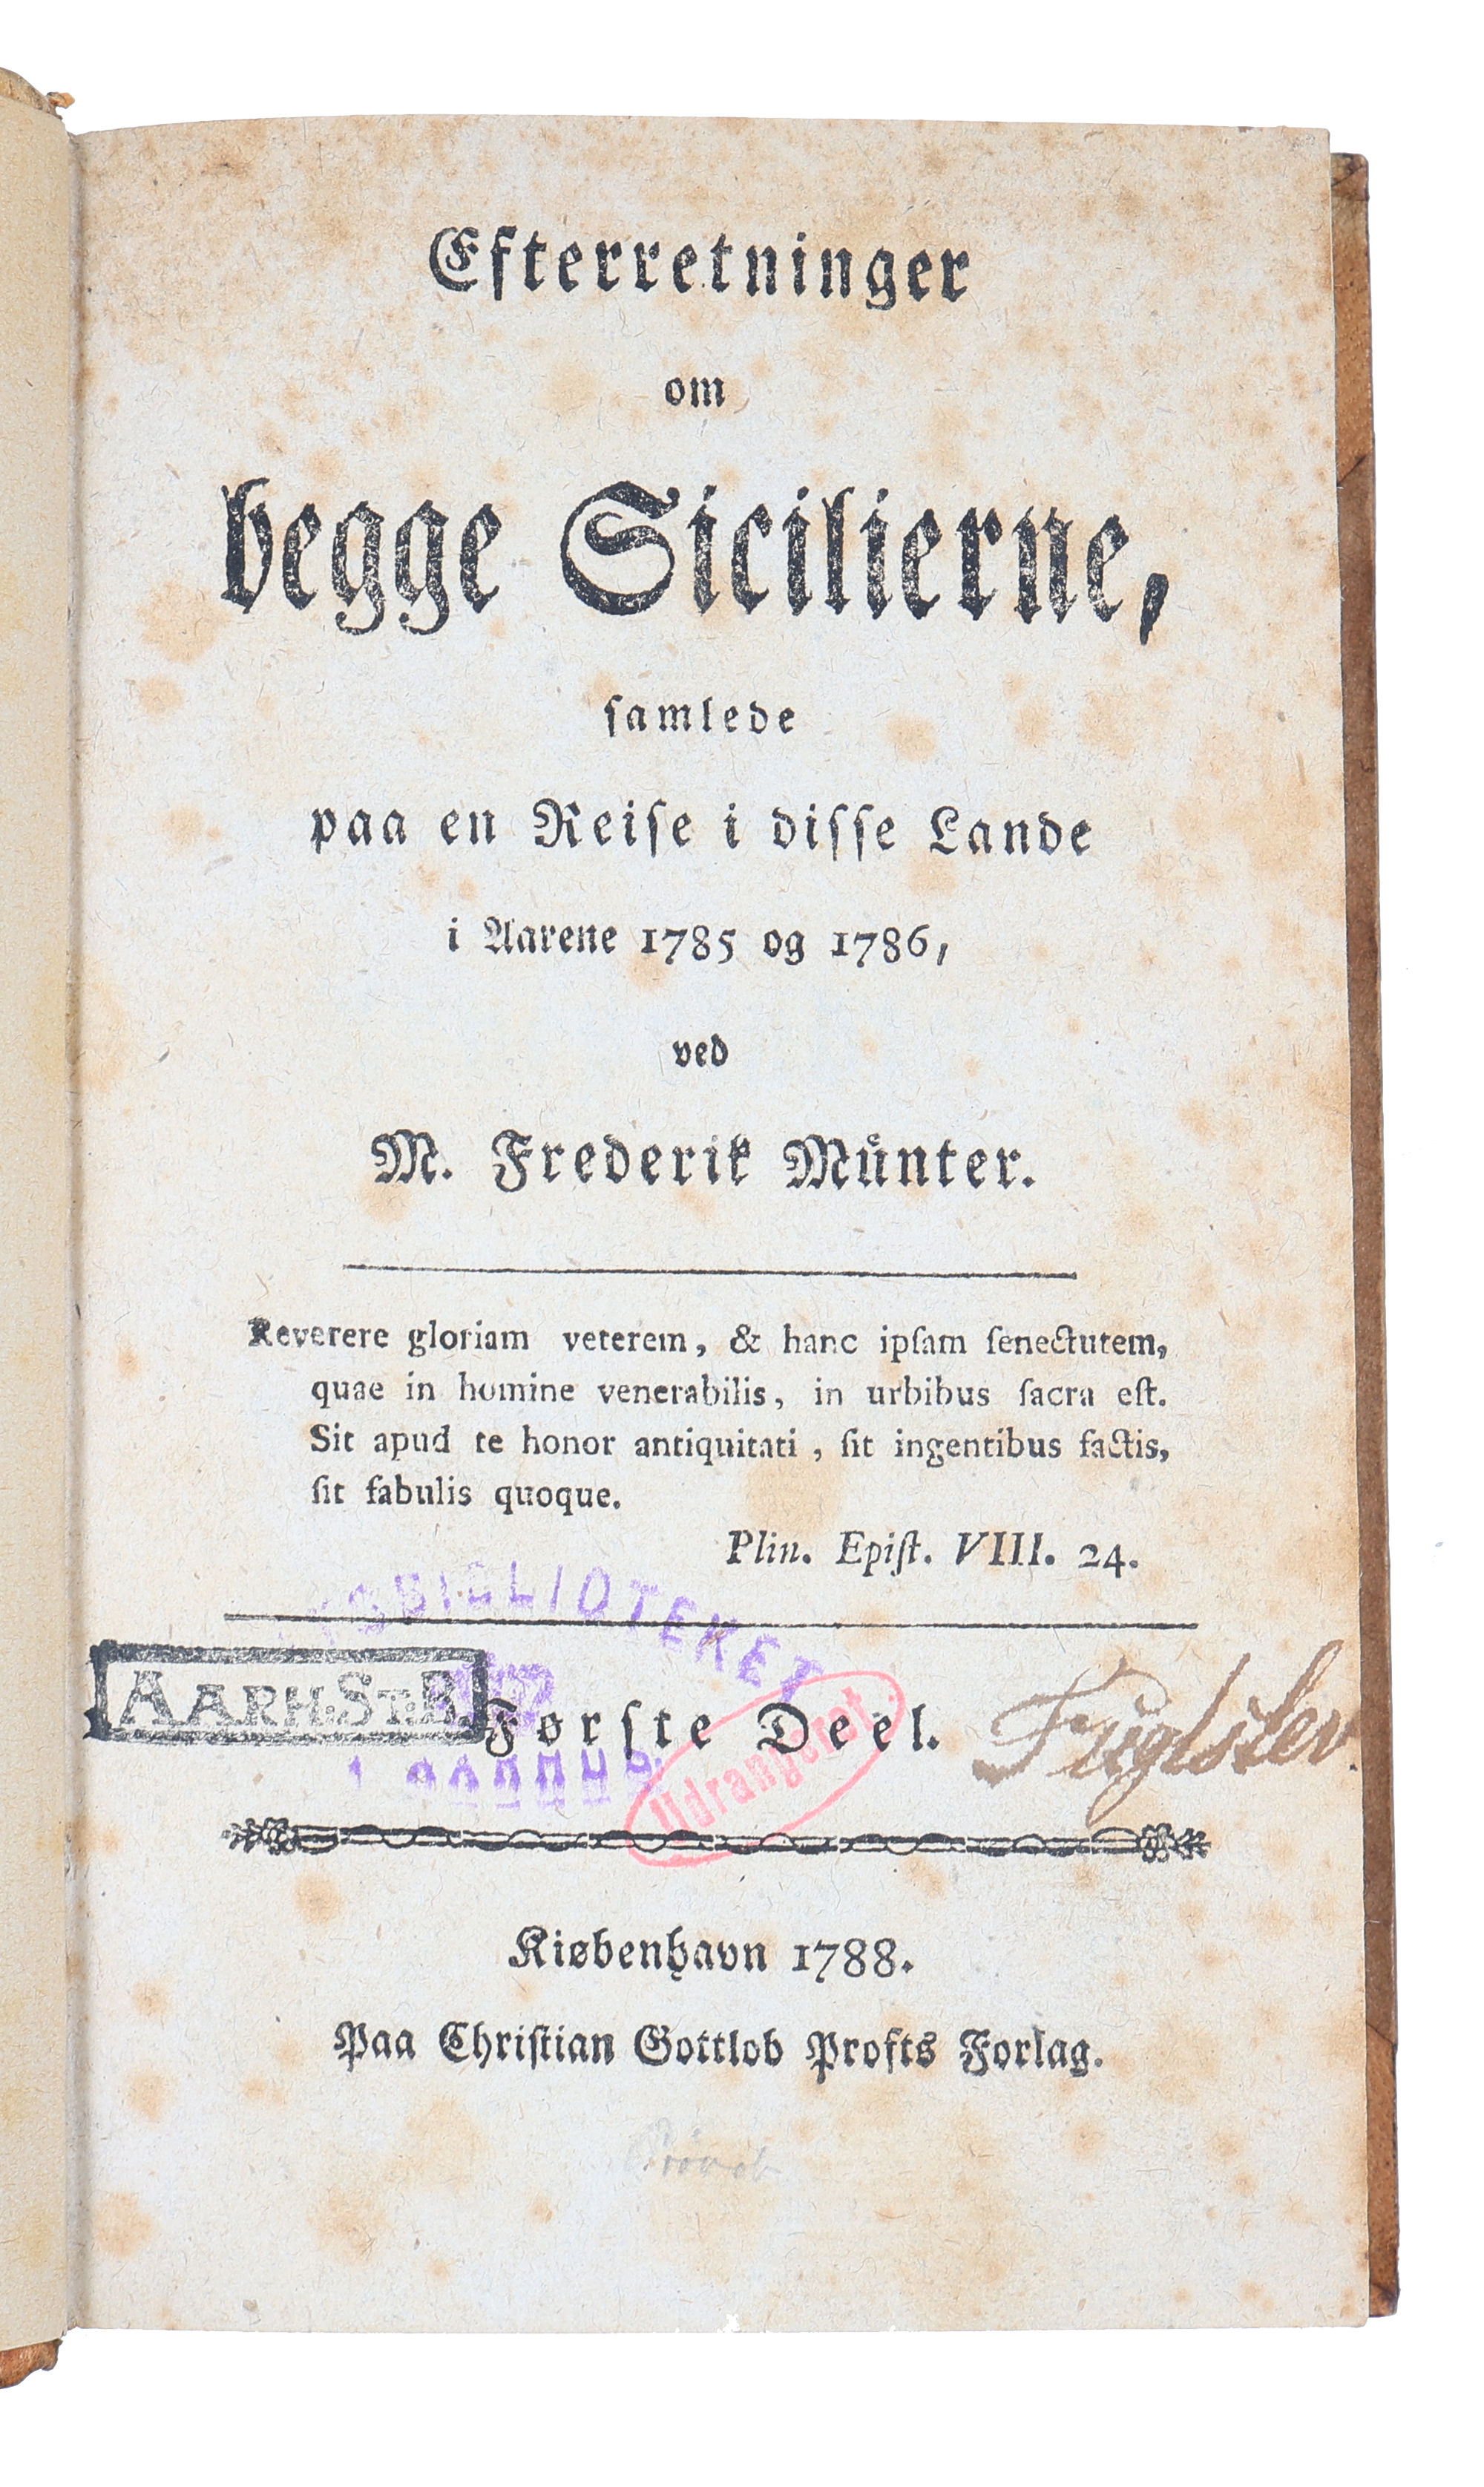 Efterretninger
om
begge Sicilierne,
ſamlede
paa en Reiſe i diſſe Lande
i Aarene 1785 og 1786,
ved
M. Frederik Můnter.
Reverere gloriam veterem, & hanc ipſam ſenectutem,
quae in homine venerabilis, in urbibus ſacra eſt.
Sit apud te honor antiquitati, ſit ingentibus factis,
ſit fabulis quoque.
Plin. Epiſt. VIII. 24.
SBIBLIOTEKET
AARH:ST:B
Førſte Deel.
Fuglslev.
Udrangeret
I AARHUS.
Kiøbenhavn 1788.
Paa Chriſtian Gottlob Profts Forlag.